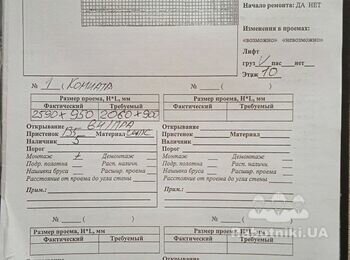 Начало ремонта: ДА НЕТ
Изменения в проемах:
«возможно» «невозможно»
Лифт
груз V пас нет
Этаж 10
№ 1 ( КОМНАТА )
Размер проема, Н*L, мм Размер проема, Н*L, мм
Фактический Требуемый Фактический Требуемый
2590 × 950 2060 × 900
Открывание Открывание
Пристенок 135 Материал Пристенок Материал
Наличник 5 Наличник
Порог Порог
Монтаж + Демонтаж Монтаж Демонтаж
Подр. полотна Раст. наличн. Подр. полотна Раст. наличн.
Нашивка бруса Расшир. проема Нашивка бруса Расшир. проема
Расстояние от проема до угла стены Расстояние от проема до угла стены
Прим.: Прим.:
№ ( ) № ( )
Размер проема, Н*L, мм Размер проема, Н*L, мм
Фактический Требуемый Фактический Требуемый
Rabotniki.UA